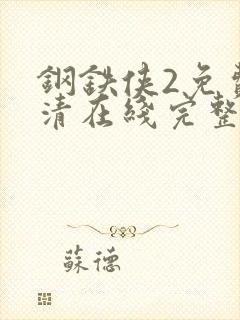 鋼鉄俠2免費
清在綫完整
蘇德